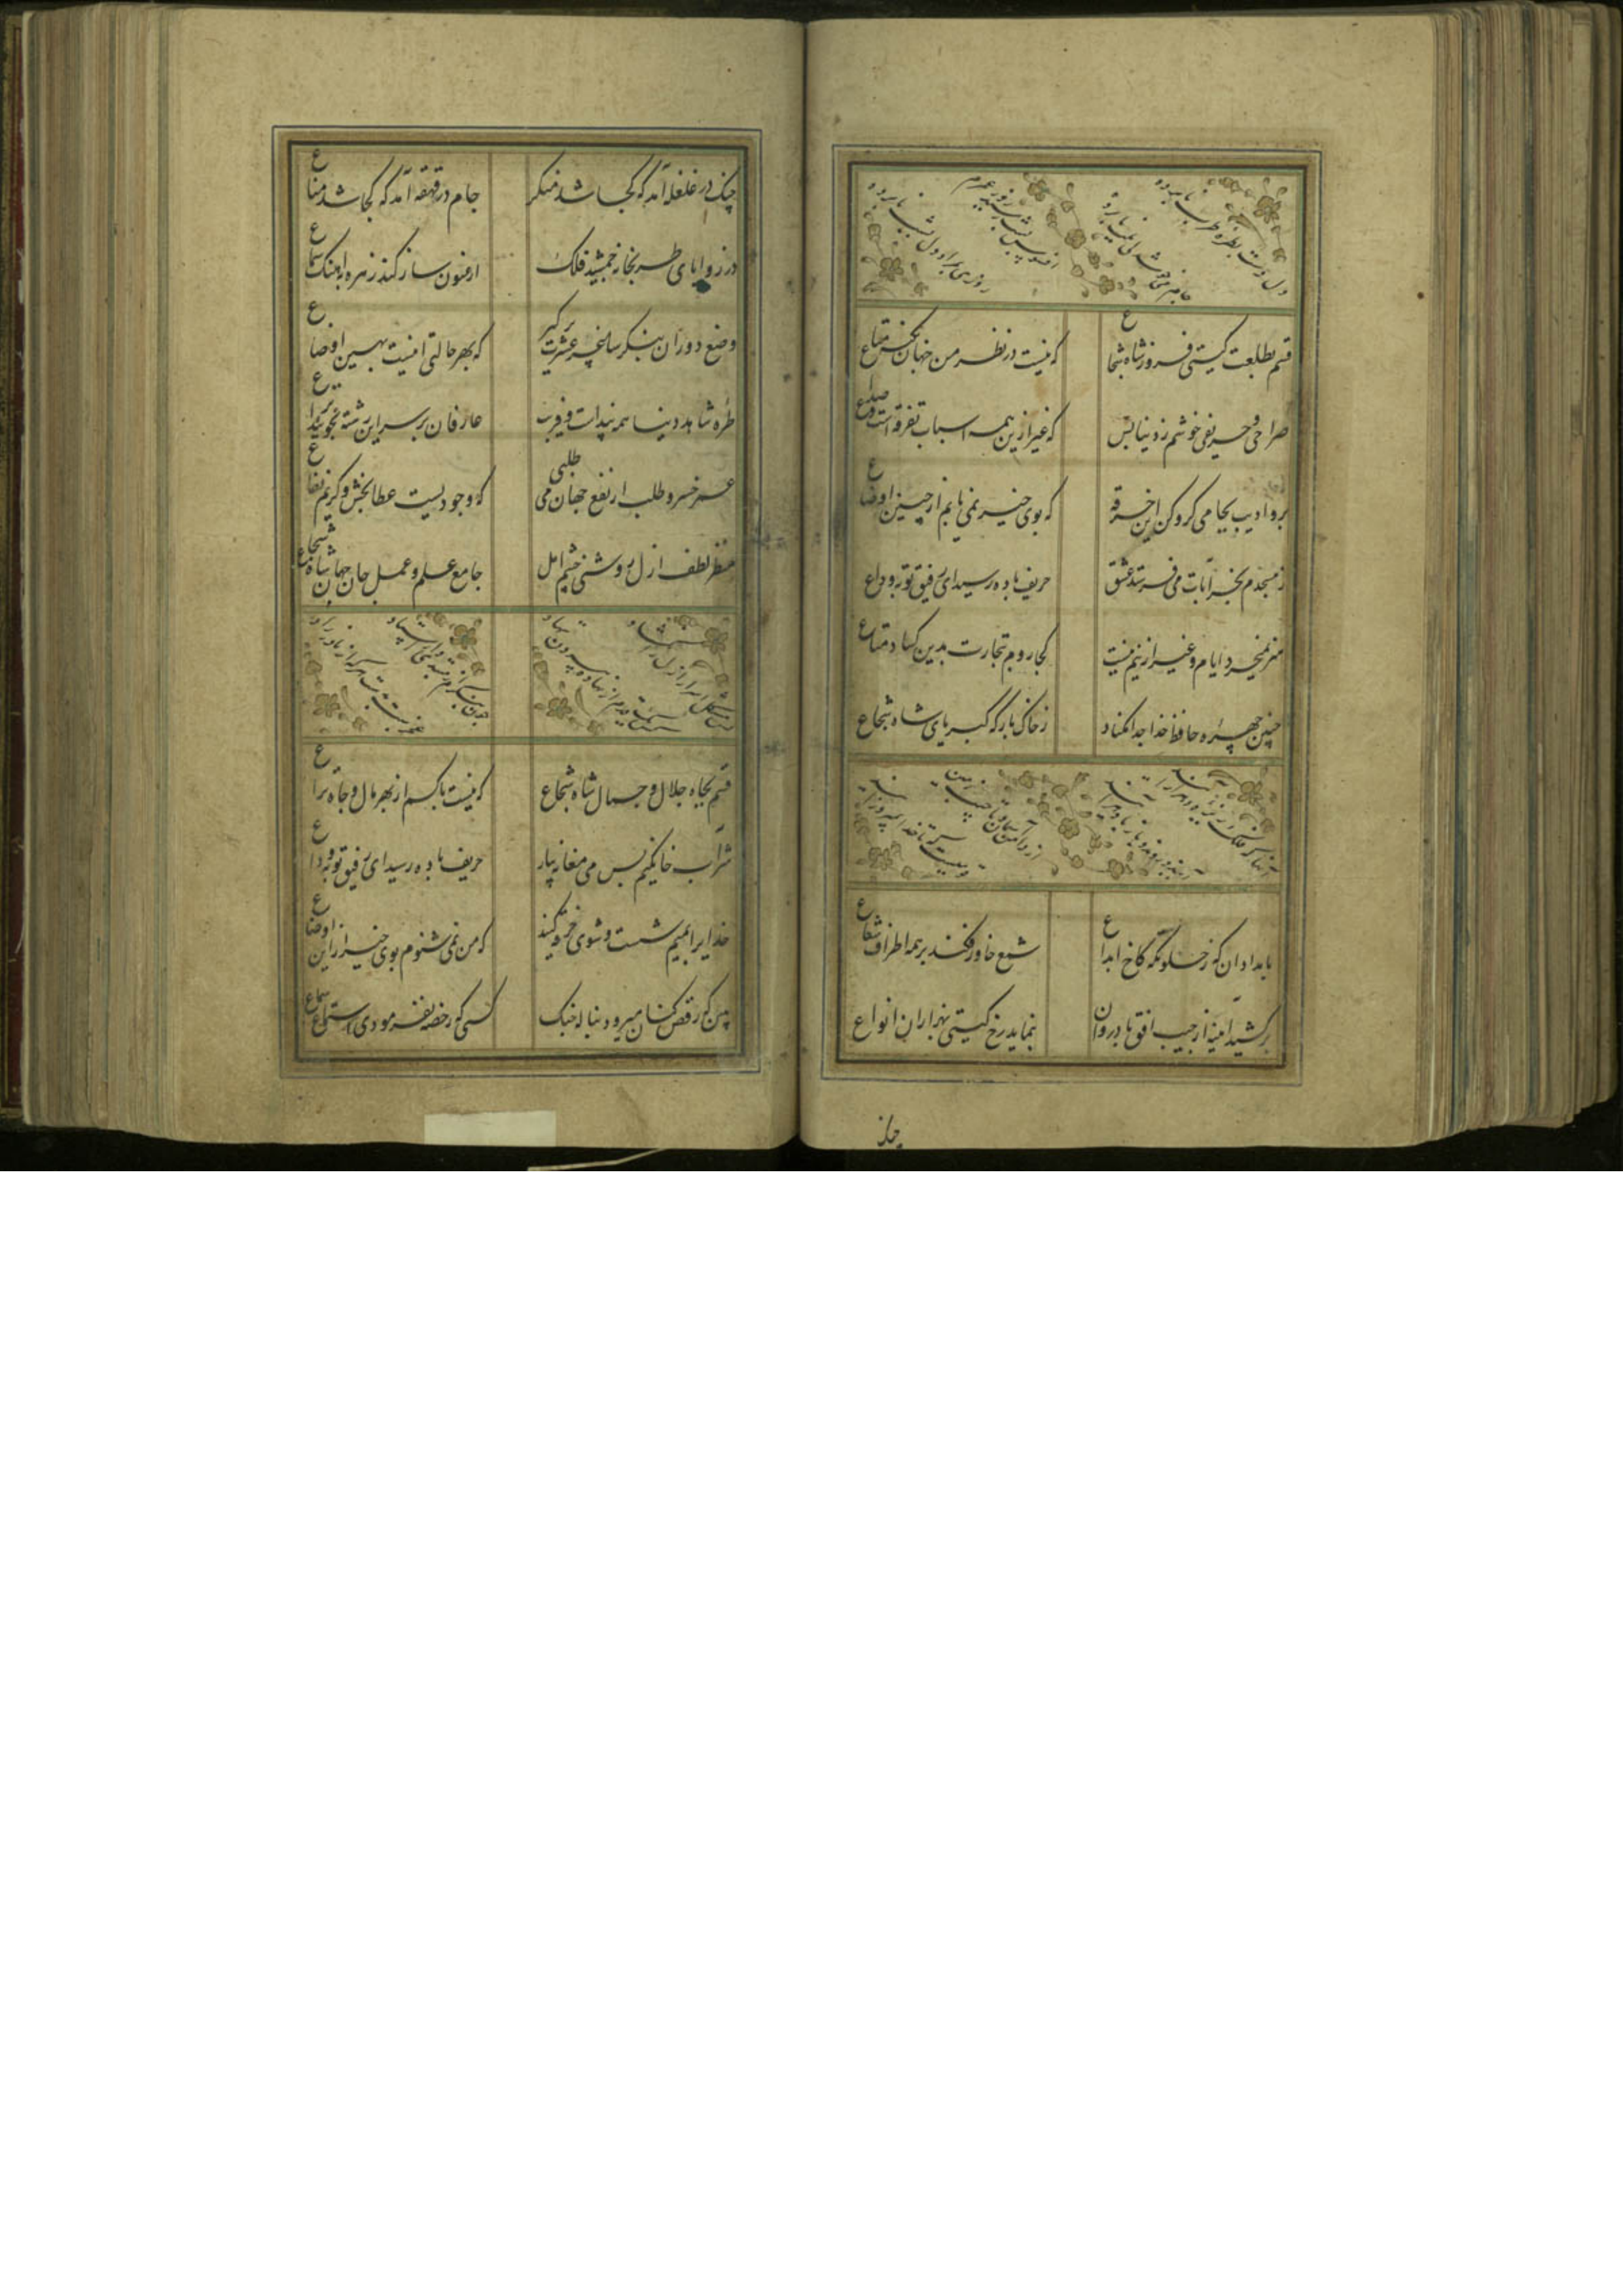 قسم بطلعت گیتی فروز شاه شجاع
که نیست در نظر من جهان بخس متاع
صراحی و حریفی خوشم ز دنیا بس
که غیر ازین همه اسباب تفرقه است و صداع
برو ادیب بجامی گرو کن این خرقه
که بوی خیر نمی یابم از چنین اوضاع
ز مسجدم بخرابات می فرستد عشق
حریف باده رسید ای رفیق توبه وداع
هنر نمیخرد ایام و غیر ازینم نیست
کجا روم بتجارت بدین کساد متاع
جبین و چهره حافظ خدا جدا مکناد
ز خاک بارگه کبریای شاه شجاع
بامدادان که ز خلوتگه کاخ ابداع
شمع خاور فکند بر همه اطراف شعاع
برکشد آینه از جیب افق باد روان
بنماید رخ گیتی بهزاران انواع
چنگ
چنگ در غلغله آمد که کجا شد منکر
جام در قهقهه آمد که کجا شد مناع
در زوایای طربخانه جمشید فلک
ارغنون ساز کند زهره بآهنگ سماع
وضع دوران بنگر ساغر عشرت برگیر
که بهر حالتی اینست بهین اوضاع
طره شاهد دنیا همه بند است و فریب
عارفان بر سر این رشته نجویند نزاع
عمر خسرو طلب ار نفع جهان می طلبی
که وجودیست عطابخش و کریم نفاع
مظهر لطف ازل روشنی چشم امل
جامع علم و عمل جان جهان شاه شجاع
قسم بجاه و جلال و جمال شاه شجاع
که نیست با کسم از بهر مال و جاه نزاع
شراب خانگیم بس می مغانه بیار
حریف باده رسید ای رفیق توبه وداع
خدایرا بمیم شست و شوی خرقه کنید
که من نمی شنوم بوی خیر ازین اوضاع
ببین که رقص کنان میرود بناله چنگ
کسی که رخصه نفرمودی استماع سماع